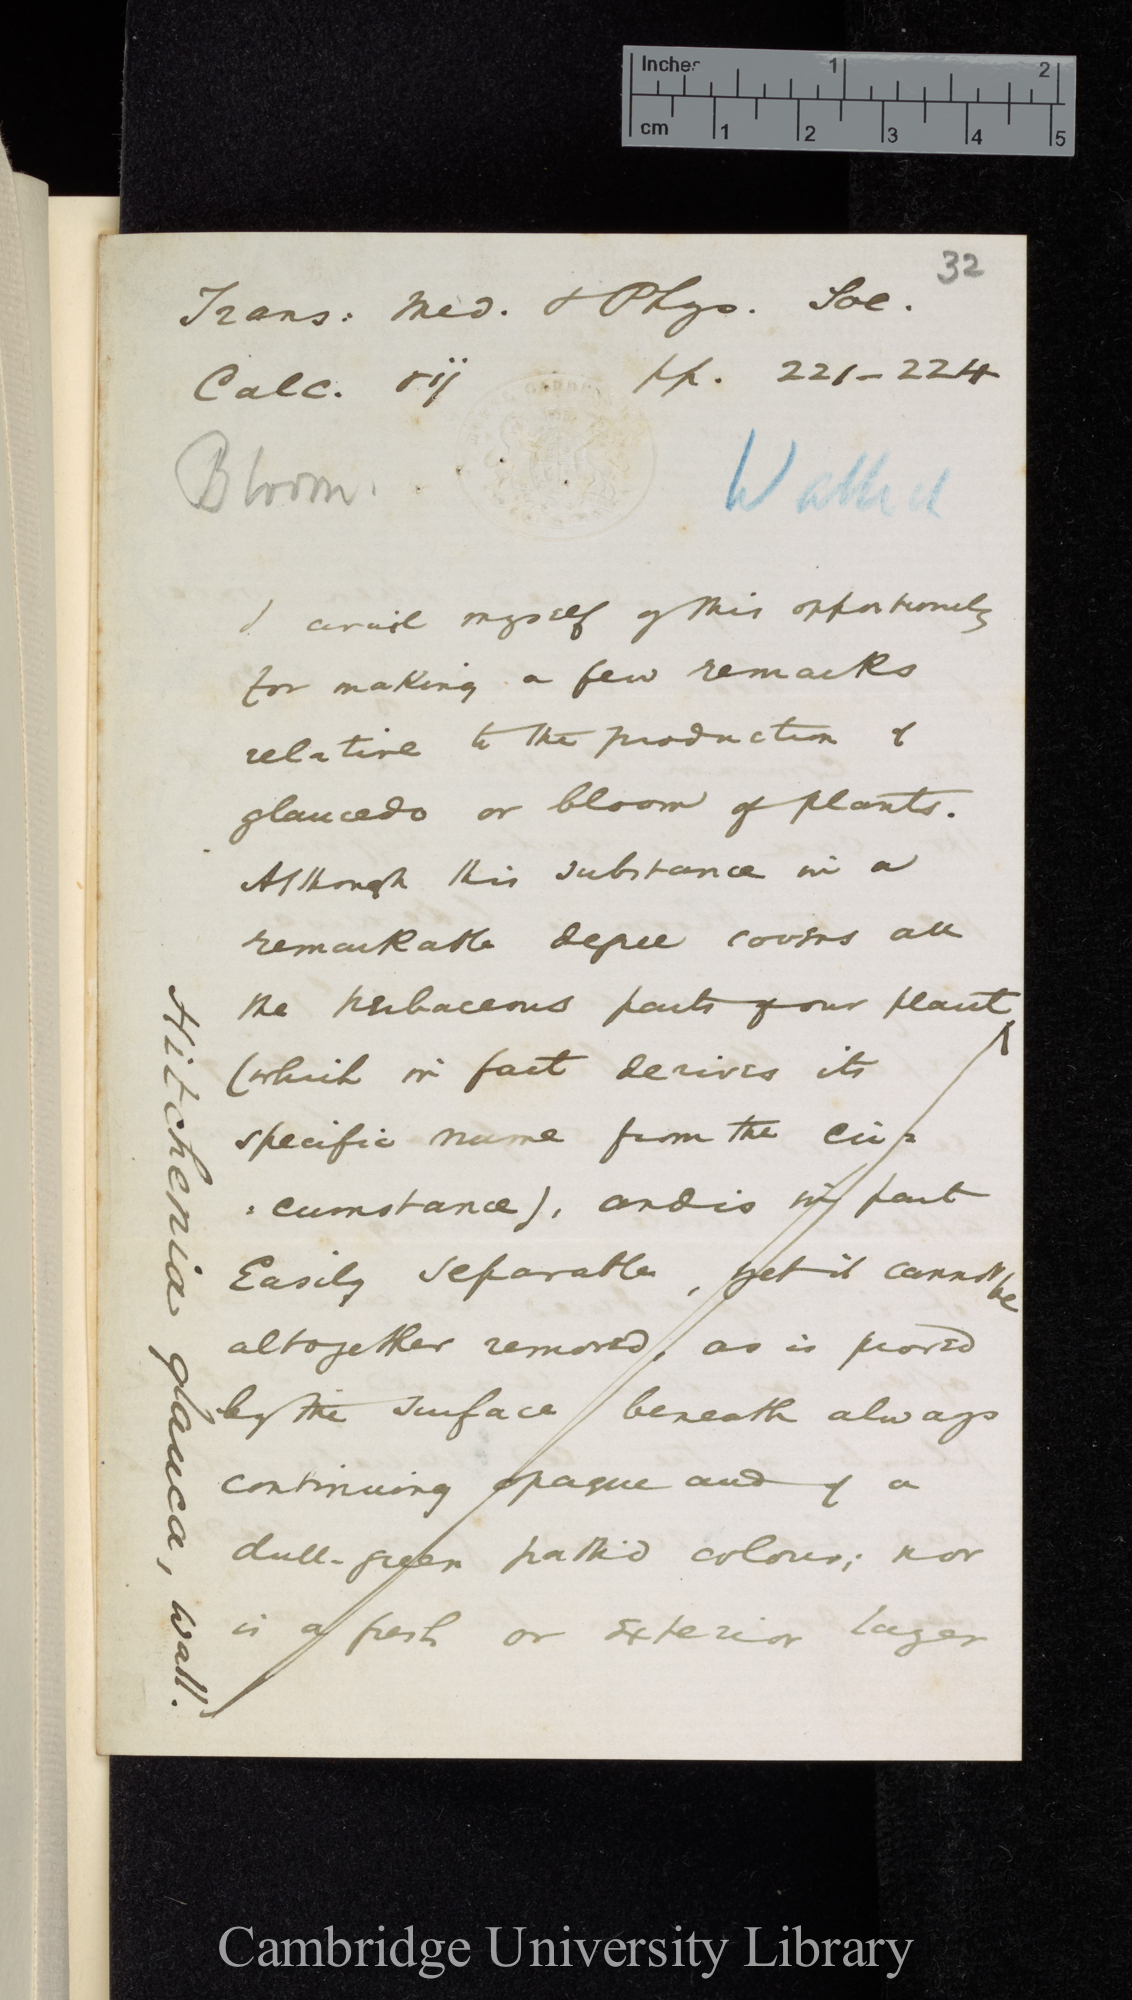 Inches 1 2
cm 1 2 3 4 5
32
Trans: Med. & Phys. Soc.
Calc. vij pp. 221-224
Bloom. Wallich
I avail myself of this opportunity
for making a few remarks
relative to the production of
glaucedo or bloom of plants.
Although this substance in a
remarkable degree covers all
the herbaceous parts of our plant
(which in fact derives its
specific name from the cir=
=cumstance), and is in part
Easily separable, yet it cannot be
altogether removed, as is proved
by the surface beneath always
continuing opaque and of a
dull-green pallid colour; nor
is a fresh or exterior layer
Hitchenia glauca, Wall.
Cambridge University Library